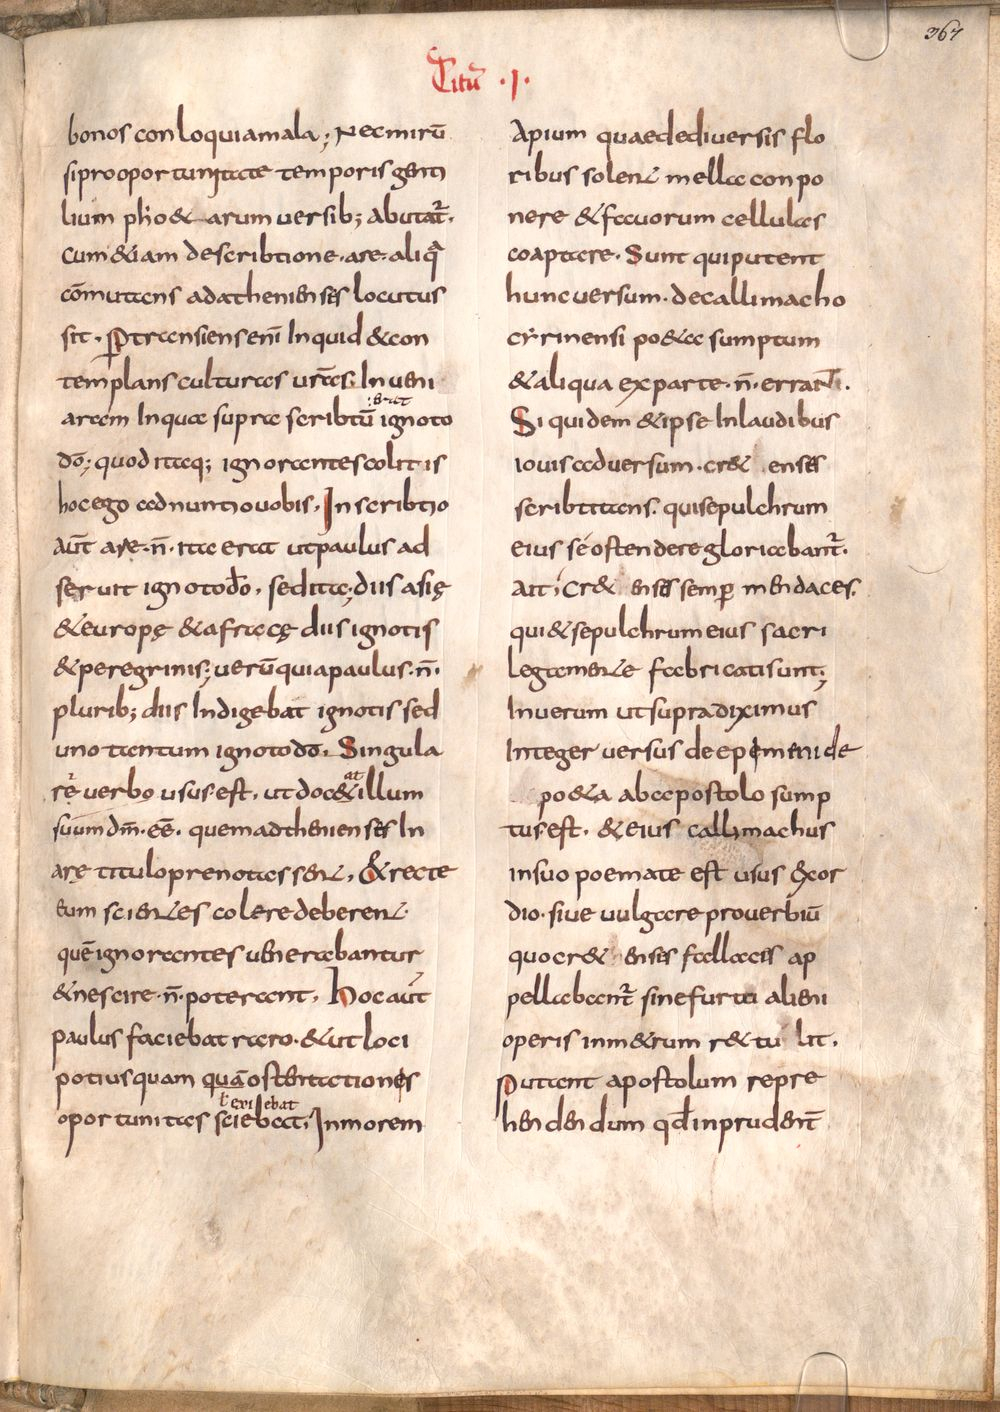 367
Titū · I ·
bonos conloquia mala; Nec mirū
si pro oportunitate temporis genti
lium pho&arum versib; abutat̄.
Cum &iam describtione · are · aliq̄
cōmutans ad athenienses locutus
sit. P̱transiens enī Inquid & con
templans culturas urās. Inveni
aram In qua supra scribtū erat ignoto
dō; quod itaq; ignorantes colitis
hoc ego adnuntio vobis. Inscribtio
aūt are · n̄ · ita erat ut paulus ad
seruit ignoto d̄o. sed ita; diis asię
& europę & africę diis ignotis
& peregrinis; verū quia paulus · n̄ ·
plurib; diis Indigebat ignotis sed
uno tantum ignoto dō. Singula
rę verbo usus est. ut doc& at illum
suum dm̄ · eē̄ · quem adthenienses In
arę titulo prenotassent. & recte
eum scientes colere deberent
quē ignorantes venerabantur
& nescire · n̄ · poterant. Hoc aūt
paulus faciebat raro · & ut loci
potius quam quā ostentationis
oportunitas sciebat ł exiebat. In morem
Apium quae de diversis flo
ribus solent mella conpo
nere & favorum cellulas
coaptare. Sunt qui putent
hunc versum · de callimacho
cyrinensi po&a sumptum
& aliqua ex parte · n̄ · errant̄.
Siquidem & ipse In laudibus
iovis adversum · cr&enses
scribtitans. qui sepulchrum
eius sé ostendere gloriabant̄.
Ait; Cr&enses semp̱ mendaces.
qui & sepulchrum eius sacri
lega mente fabricati sunt;
In verum ut supra diximus
Integer versus de epimenide
po&a ab apostolo sump
tus est. & eius callimachus
in suo poemate est usus exor
dio. sive vulgare proverbiū
quo cr&enses fallaces ap
pellabant̄ sine furti alieni
operis in m&rum r&tulit.
Putant apostolum repre
hendendum qd̄ inprudent̄